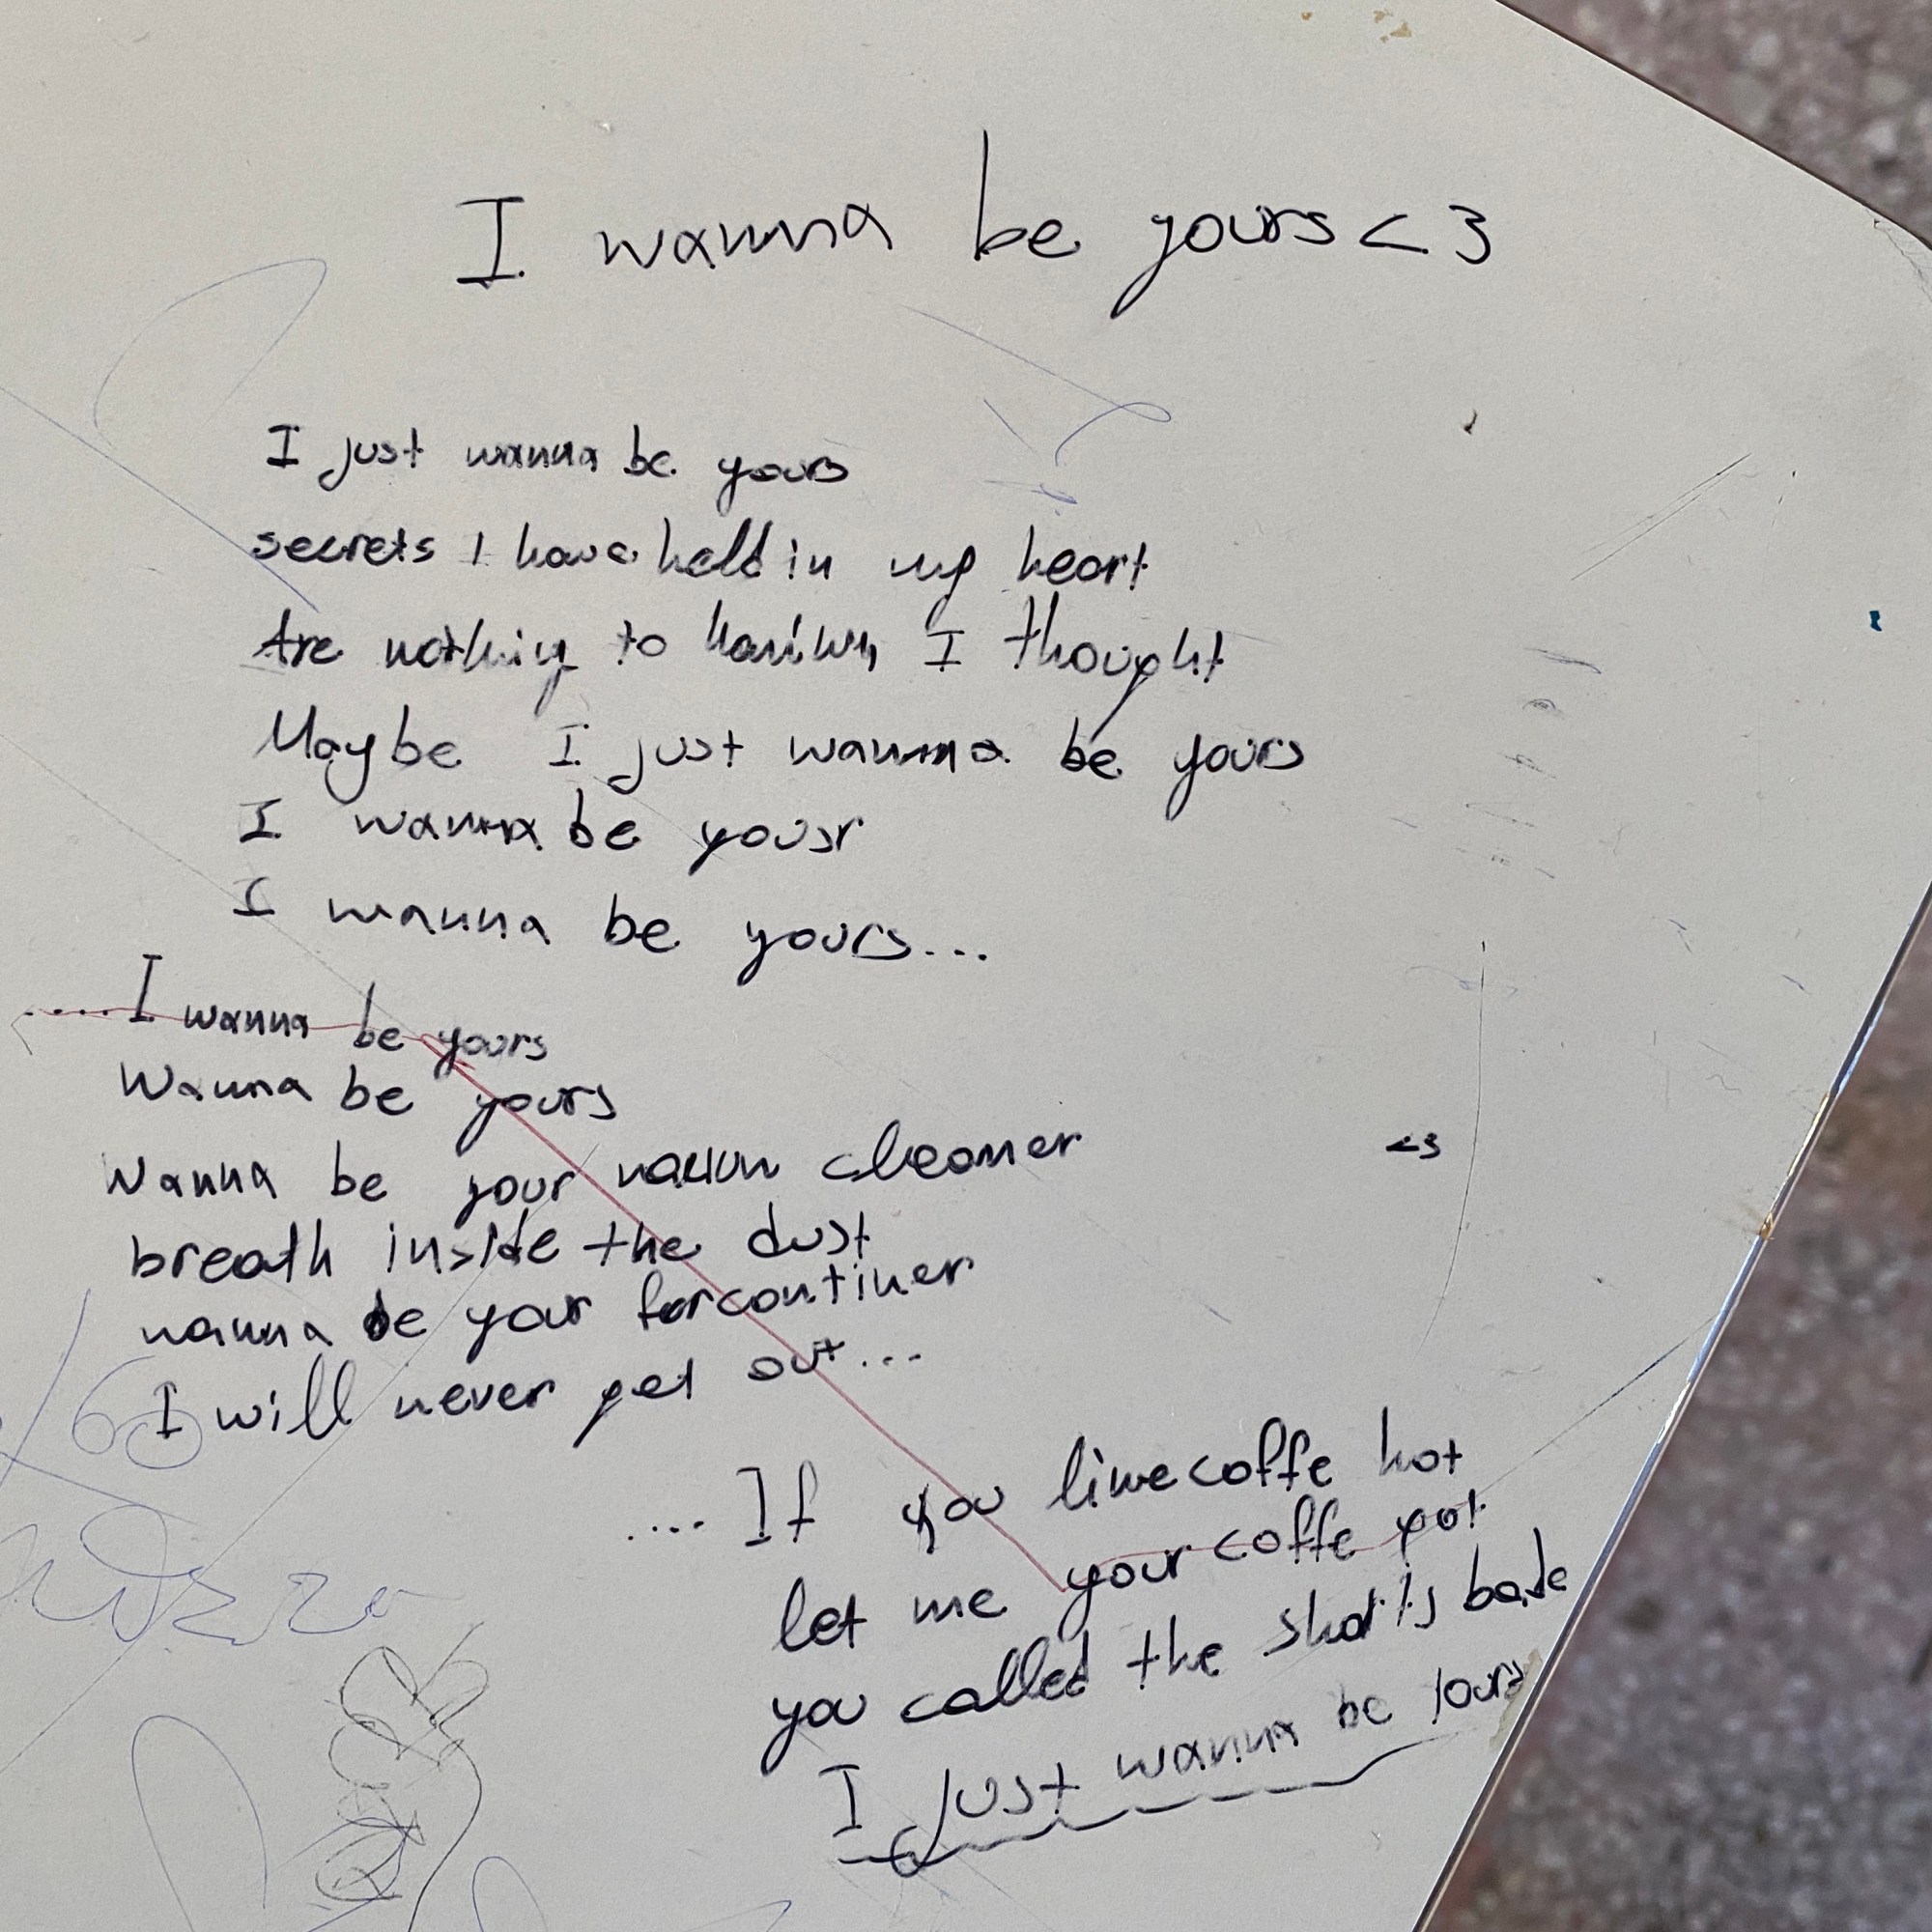 I wanna be yours <3
I just wanna be yours
secrets I have held in my heart
Are nothing to I thought
Maybe I just wanna be yours
I wanna be yousr
I wanna be yours...
....I wanna be yours
Wanna be yours
Wanna be your cleaner
<3
breath inside the dust
wanna be your forcontiner
I will never get out...
....If you like coffe hot
let me your coffe pot
you called the shot is bade
I just wanna be yours